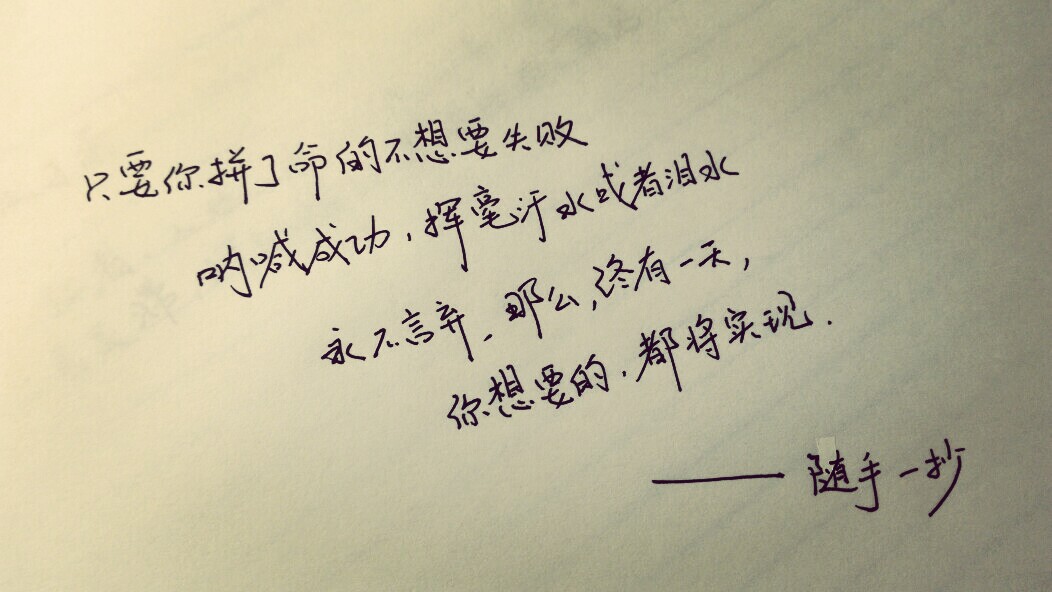 只要你拼了命的不想要失败
呐喊成功，挥毫汗水或者泪水
永不言弃、那么，终有一天，
你想要的，都将实现．
——随手一抄